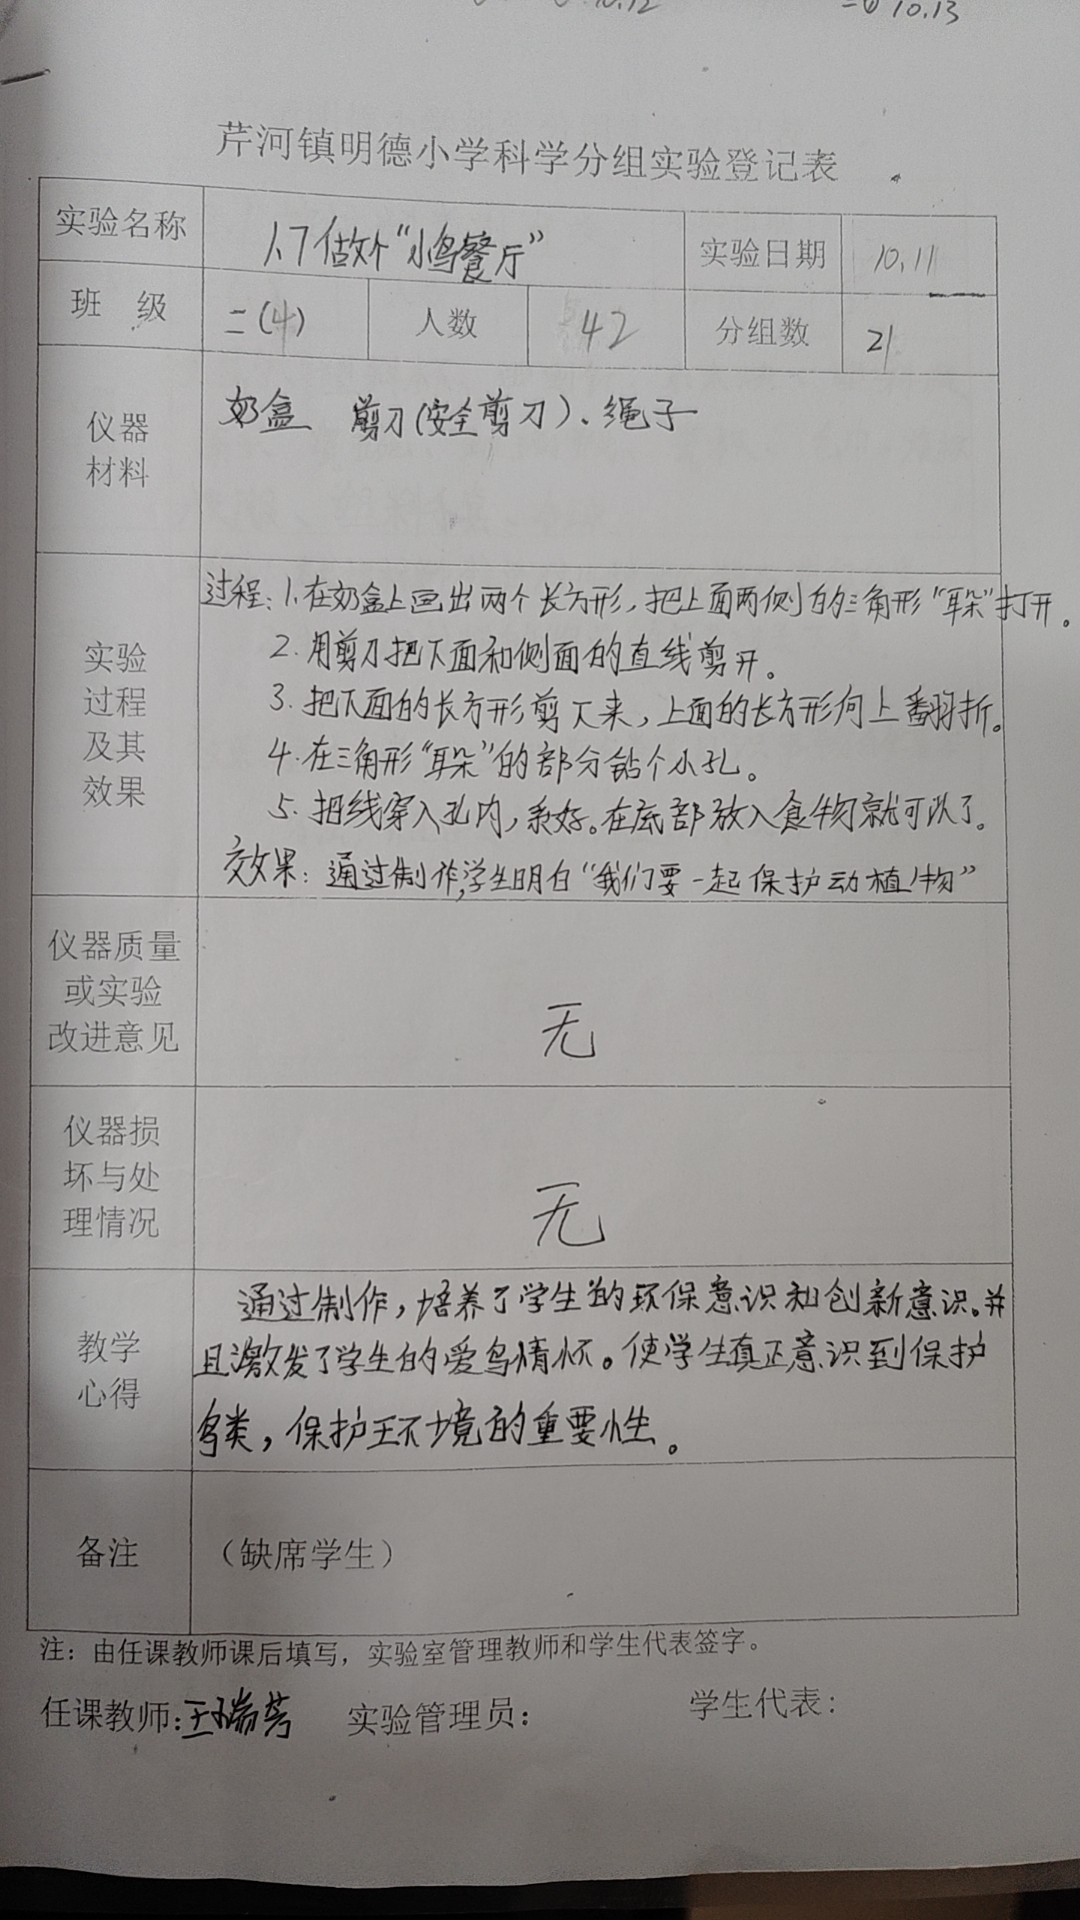 10.12 二④ 10.13
芹河镇明德小学科学分组实验登记表
实验名称 1.7做个“小鸟餐厅” 实验日期 10.11
班 级 二(4) 人数 42 分组数 21
仪器
材料
奶盒 剪刀(安全剪刀)、绳子
实验
过程
及其
效果
过程:1.在奶盒上画出两个长方形,把上面两侧的三角形“耳朵”打开。
2.用剪刀把下面和侧面的直线剪开。
3.把下面的长方形剪下来,上面的长方形向上翻折。
4.在三角形“耳朵”的部分钻个小孔。
5.把线穿入孔内,系好。在底部放入食物就可以了。
效果:通过制作,学生明白“我们要一起保护动植物”
仪器质量
或实验
改进意见
无
仪器损
坏与处
理情况
无
教学
心得
通过制作,培养了学生的环保意识和创新意识。并
且激发了学生的爱鸟情怀。使学生真正意识到保护
鸟类,保护环境的重要性。
备注 (缺席学生)
注:由任课教师课后填写,实验室管理教师和学生代表签字。
任课教师:王瑞芳 实验管理员: 学生代表: